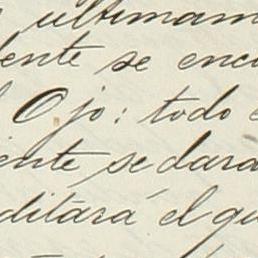 ultimam
ente se encu
Ojo: todo
iente se dara
ditará el qu